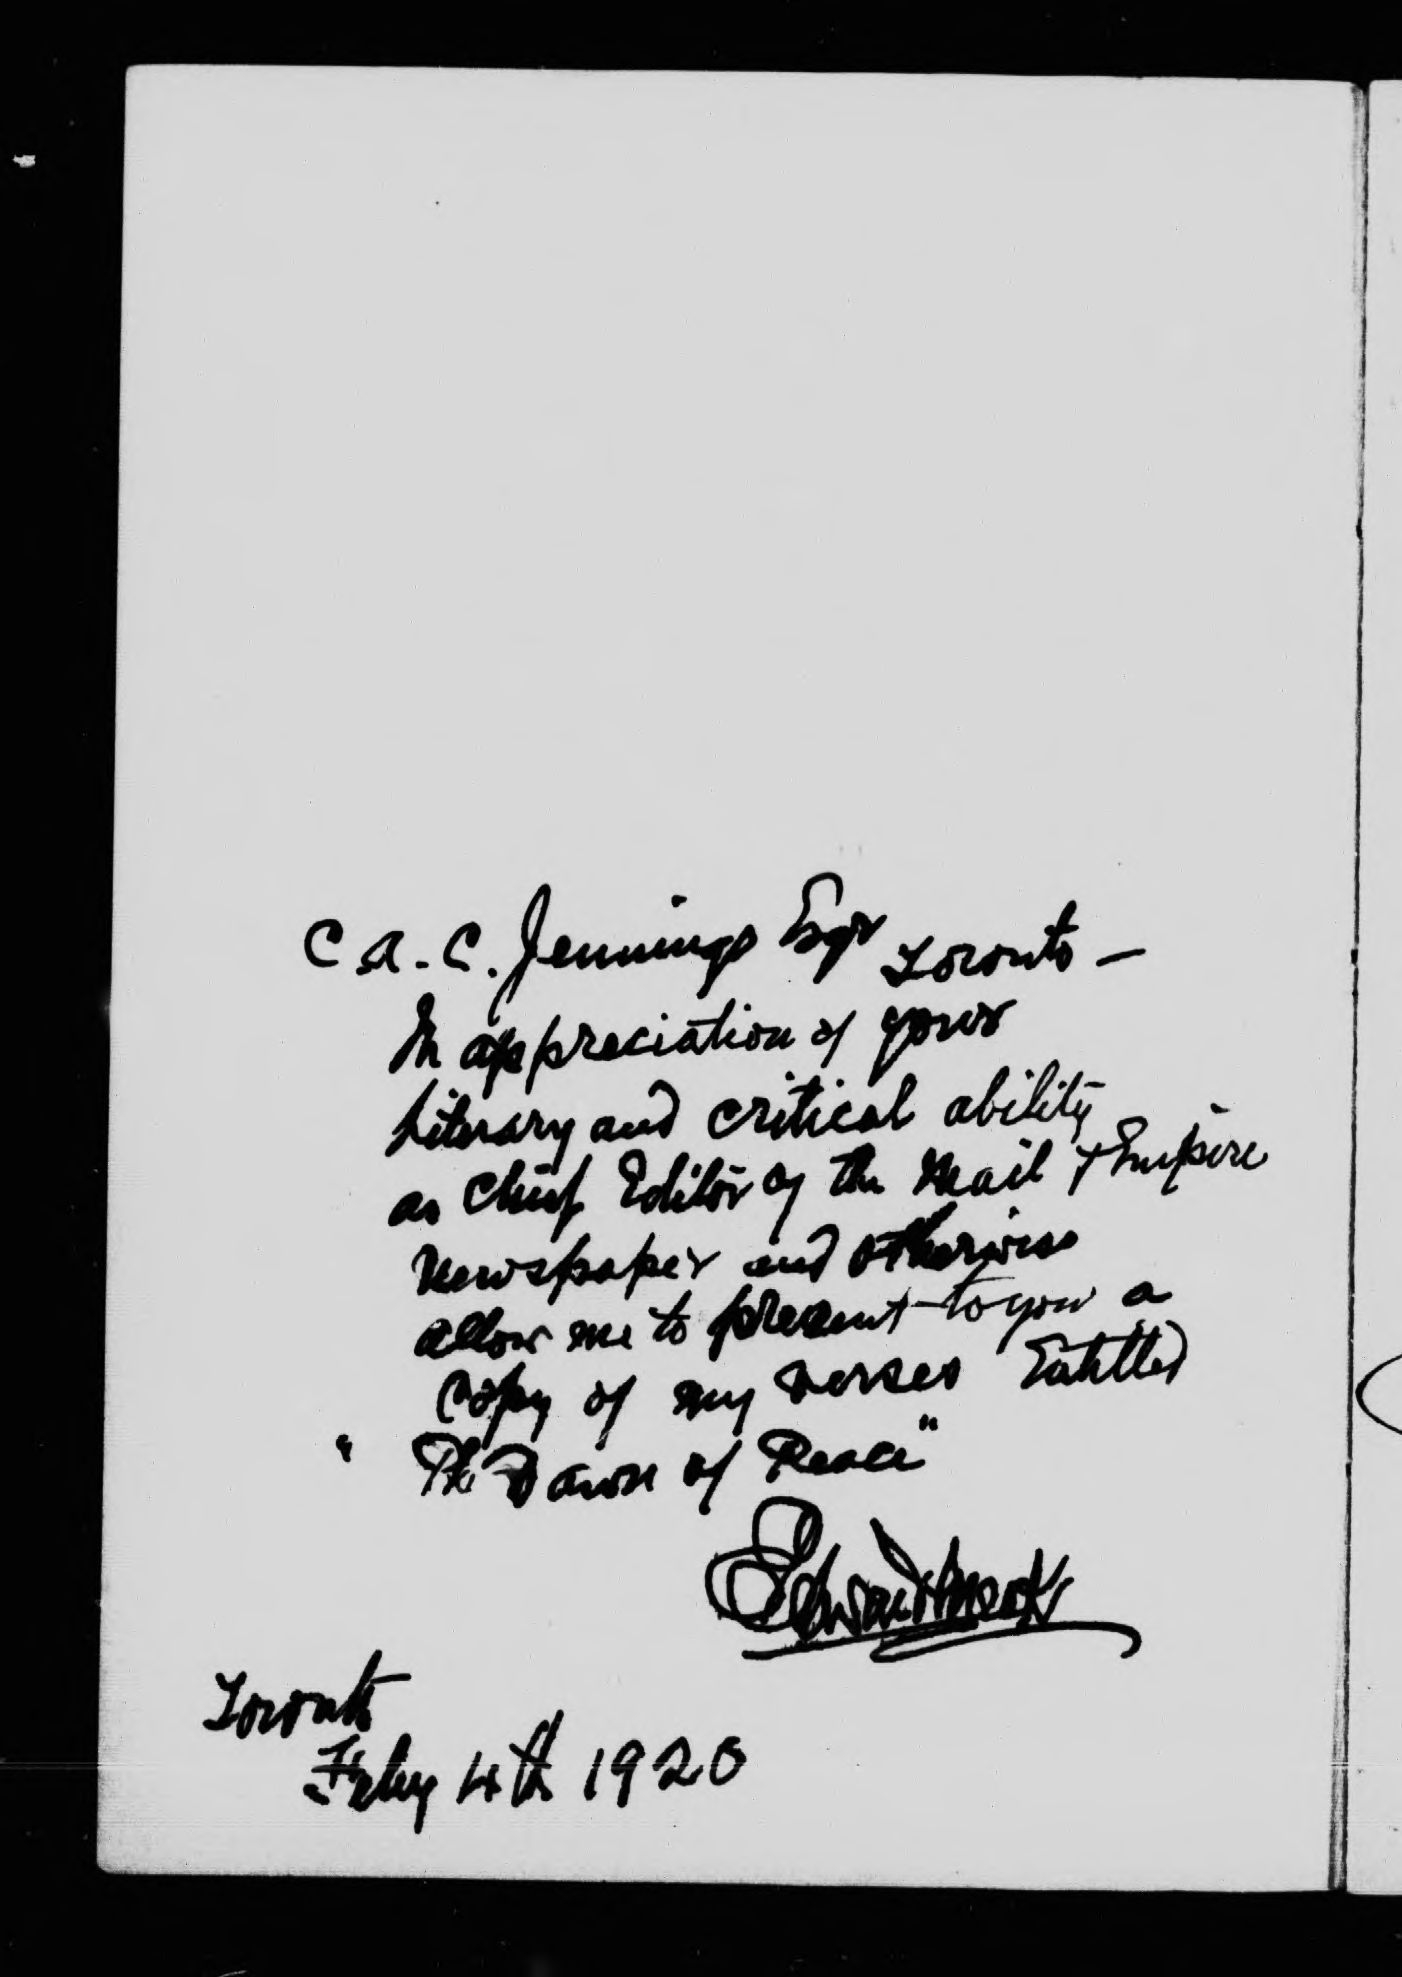 C. A. C. Jennings Esqr Toronto —
In appreciation of your
Literary and critical ability
as Chief Editor of the Mail & Empire
Newspaper and otherwise
allow me to present to you a
Copy of my verses Entitled
"The Dawn of Peace"
Edward Meek
Toronto
Feby 4th 1920